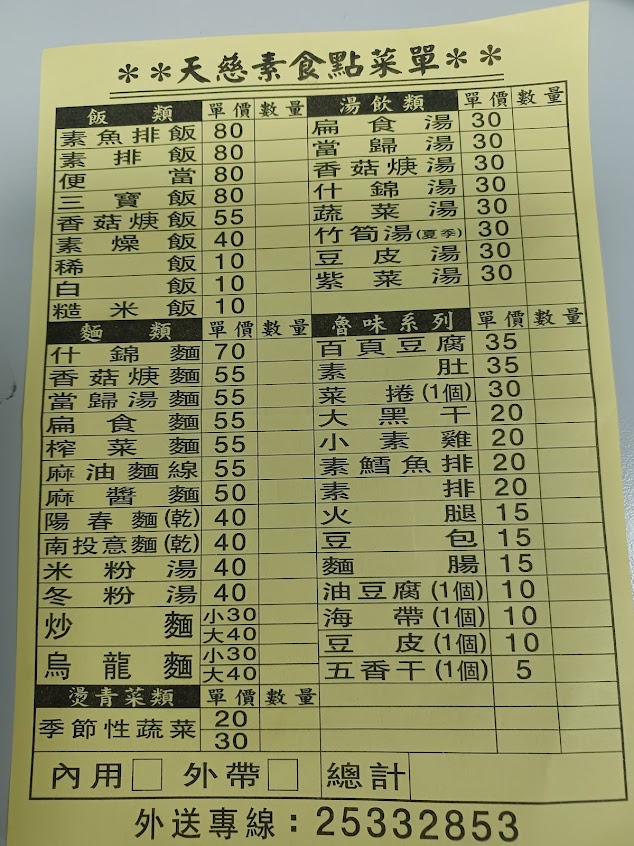 **天慈素食點菜單**
飯類 單價 數量
素魚排飯 80
素排飯 80
便當 80
三寶飯 80
香菇焿飯 55
素燥飯 40
稀飯 10
白飯 10
糙米飯 10
麵類 單價 數量
什錦麵 70
香菇焿麵 55
當歸湯麵 55
扁食麵 55
榨菜麵 55
麻油麵線 55
麻醬麵 50
陽春麵(乾) 40
南投意麵(乾) 40
米粉湯 40
冬粉湯 40
炒麵 小30
大40
烏龍麵 小30
大40
燙青菜類 單價 數量
季節性蔬菜 20
30
湯飲類 單價 數量
扁食湯 30
當歸湯 30
香菇焿湯 30
什錦湯 30
蔬菜湯 30
竹筍湯(夏季) 30
豆皮湯 30
紫菜湯 30
魯味系列 單價 數量
百頁豆腐 35
素肚 35
菜捲(1個) 30
大黑干 20
小素雞 20
素鱈魚排 20
素排 20
火腿 15
豆包 15
麵腸 15
油豆腐(1個) 10
海帶(1個) 10
豆皮(1個) 10
五香干(1個) 5
內用□ 外帶□ 總計
外送專線：25332853